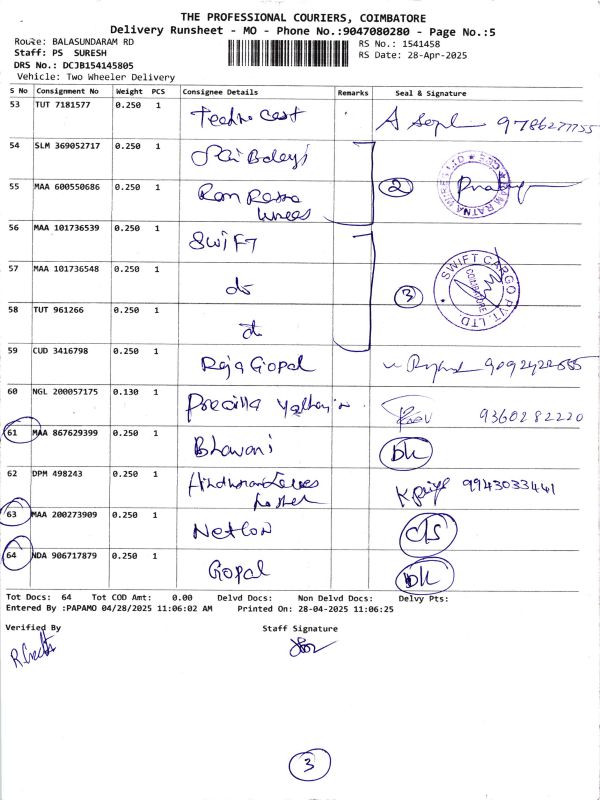 THE PROFESSIONAL COURIERS, COIMBATORE
Delivery Runsheet - MO - Phone No.:9047080280 - Page No.:5
Route: BALASUNDARAM RD
Staff: PS SURESH
DRS No.: DCJB154145805
Vehicle: Two Wheeler Delivery
RS No.: 1541458
RS Date: 28-Apr-2025
S No Consignment No Weight PCS Consignee Details Remarks Seal & Signature
53 TUT 7181577 0.250 1 Techno Cast 9786277755
54 SLM 369052717 0.250 1 Sai Balaji
55 MAA 600550686 0.250 1 Ram Ratna 2
Wires
RAM RATNA WIRES LTD
56 MAA 101736539 0.250 1 SWIFT
57 MAA 101736548 0.250 1 do 3
SWIFT CARGO PVT. LTD.
COIMBATORE
58 TUT 961266 0.250 1 do
59 CUD 3416798 0.250 1 Raja Gopal
60 NGL 200057175 0.130 1 Precilla 9360282220
61 MAA 867629399 0.250 1 Bhavani DK
62 DPM 498243 0.250 1 9943033441
63 MAA 200273909 0.250 1 Netcon C/S
64 NDA 906717879 0.250 1 Gopal DK
Tot Docs: 64 Tot COD Amt: 0.00 Delvd Docs: Non Delvd Docs: Delvy Pts:
Entered By :PAPAMO 04/28/2025 11:06:02 AM Printed On: 28-04-2025 11:06:25
Verified By Staff Signature
3